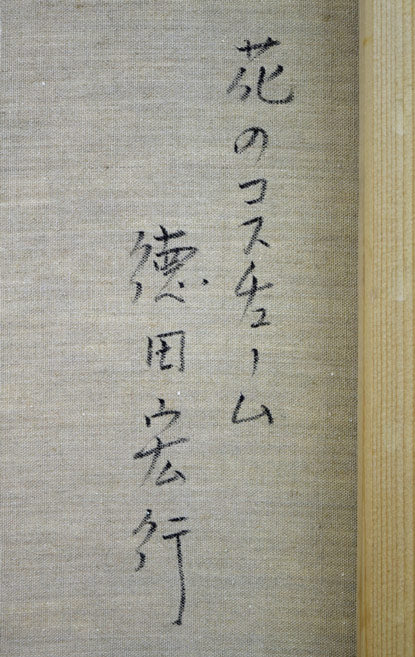 花のコスチューム
徳田宏行